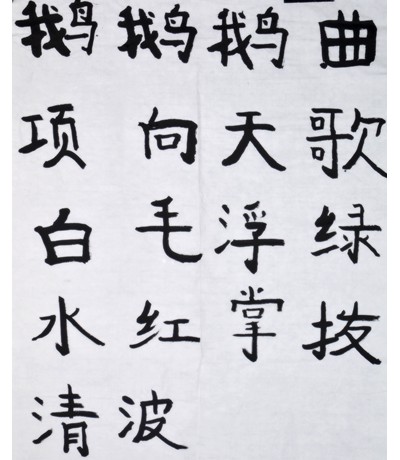 鹅鹅鹅曲
项向天歌
白毛浮绿
水红掌拨
清波